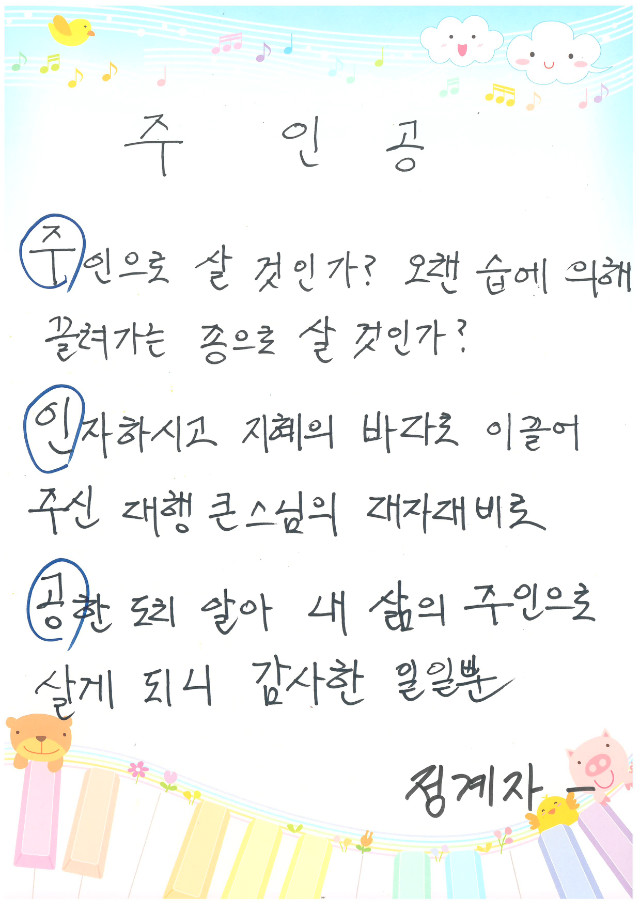 주 인 공
주인으로 살 것인가? 오랜 습에 의해
끌려가는 종으로 살 것인가?
인자하시고 지혜의 바다로 이끌어
주신 대행 큰스님의 대자대비로
공한 도리 알아 내 삶의 주인으로
살게 되니 감사한 일일뿐
정계자 -